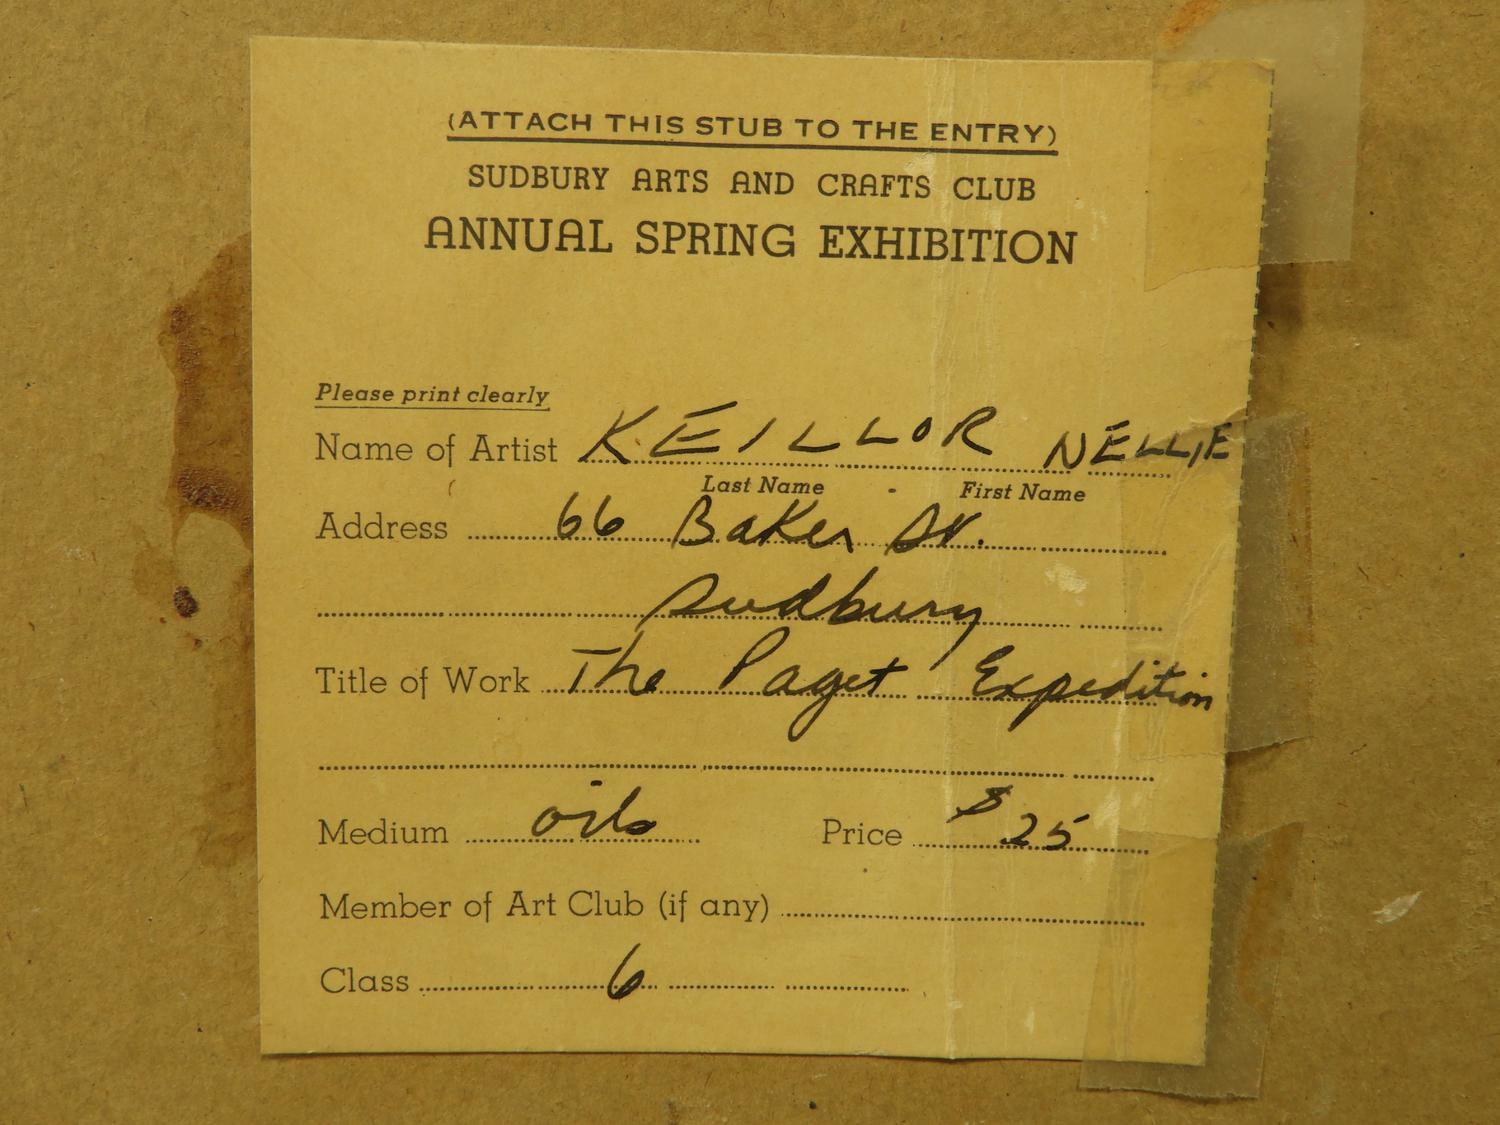 (ATTACH THIS STUB TO THE ENTRY)
SUDBURY ARTS AND CRAFTS CLUB
ANNUAL SPRING EXHIBITION
Please print clearly
Name of Artist KEILLOR NELLIE
Last Name - First Name
Address 66 Baker St.
Sudbury
Title of Work The Paget Expedition
Medium oils Price $25
Member of Art Club (if any)
Class 6